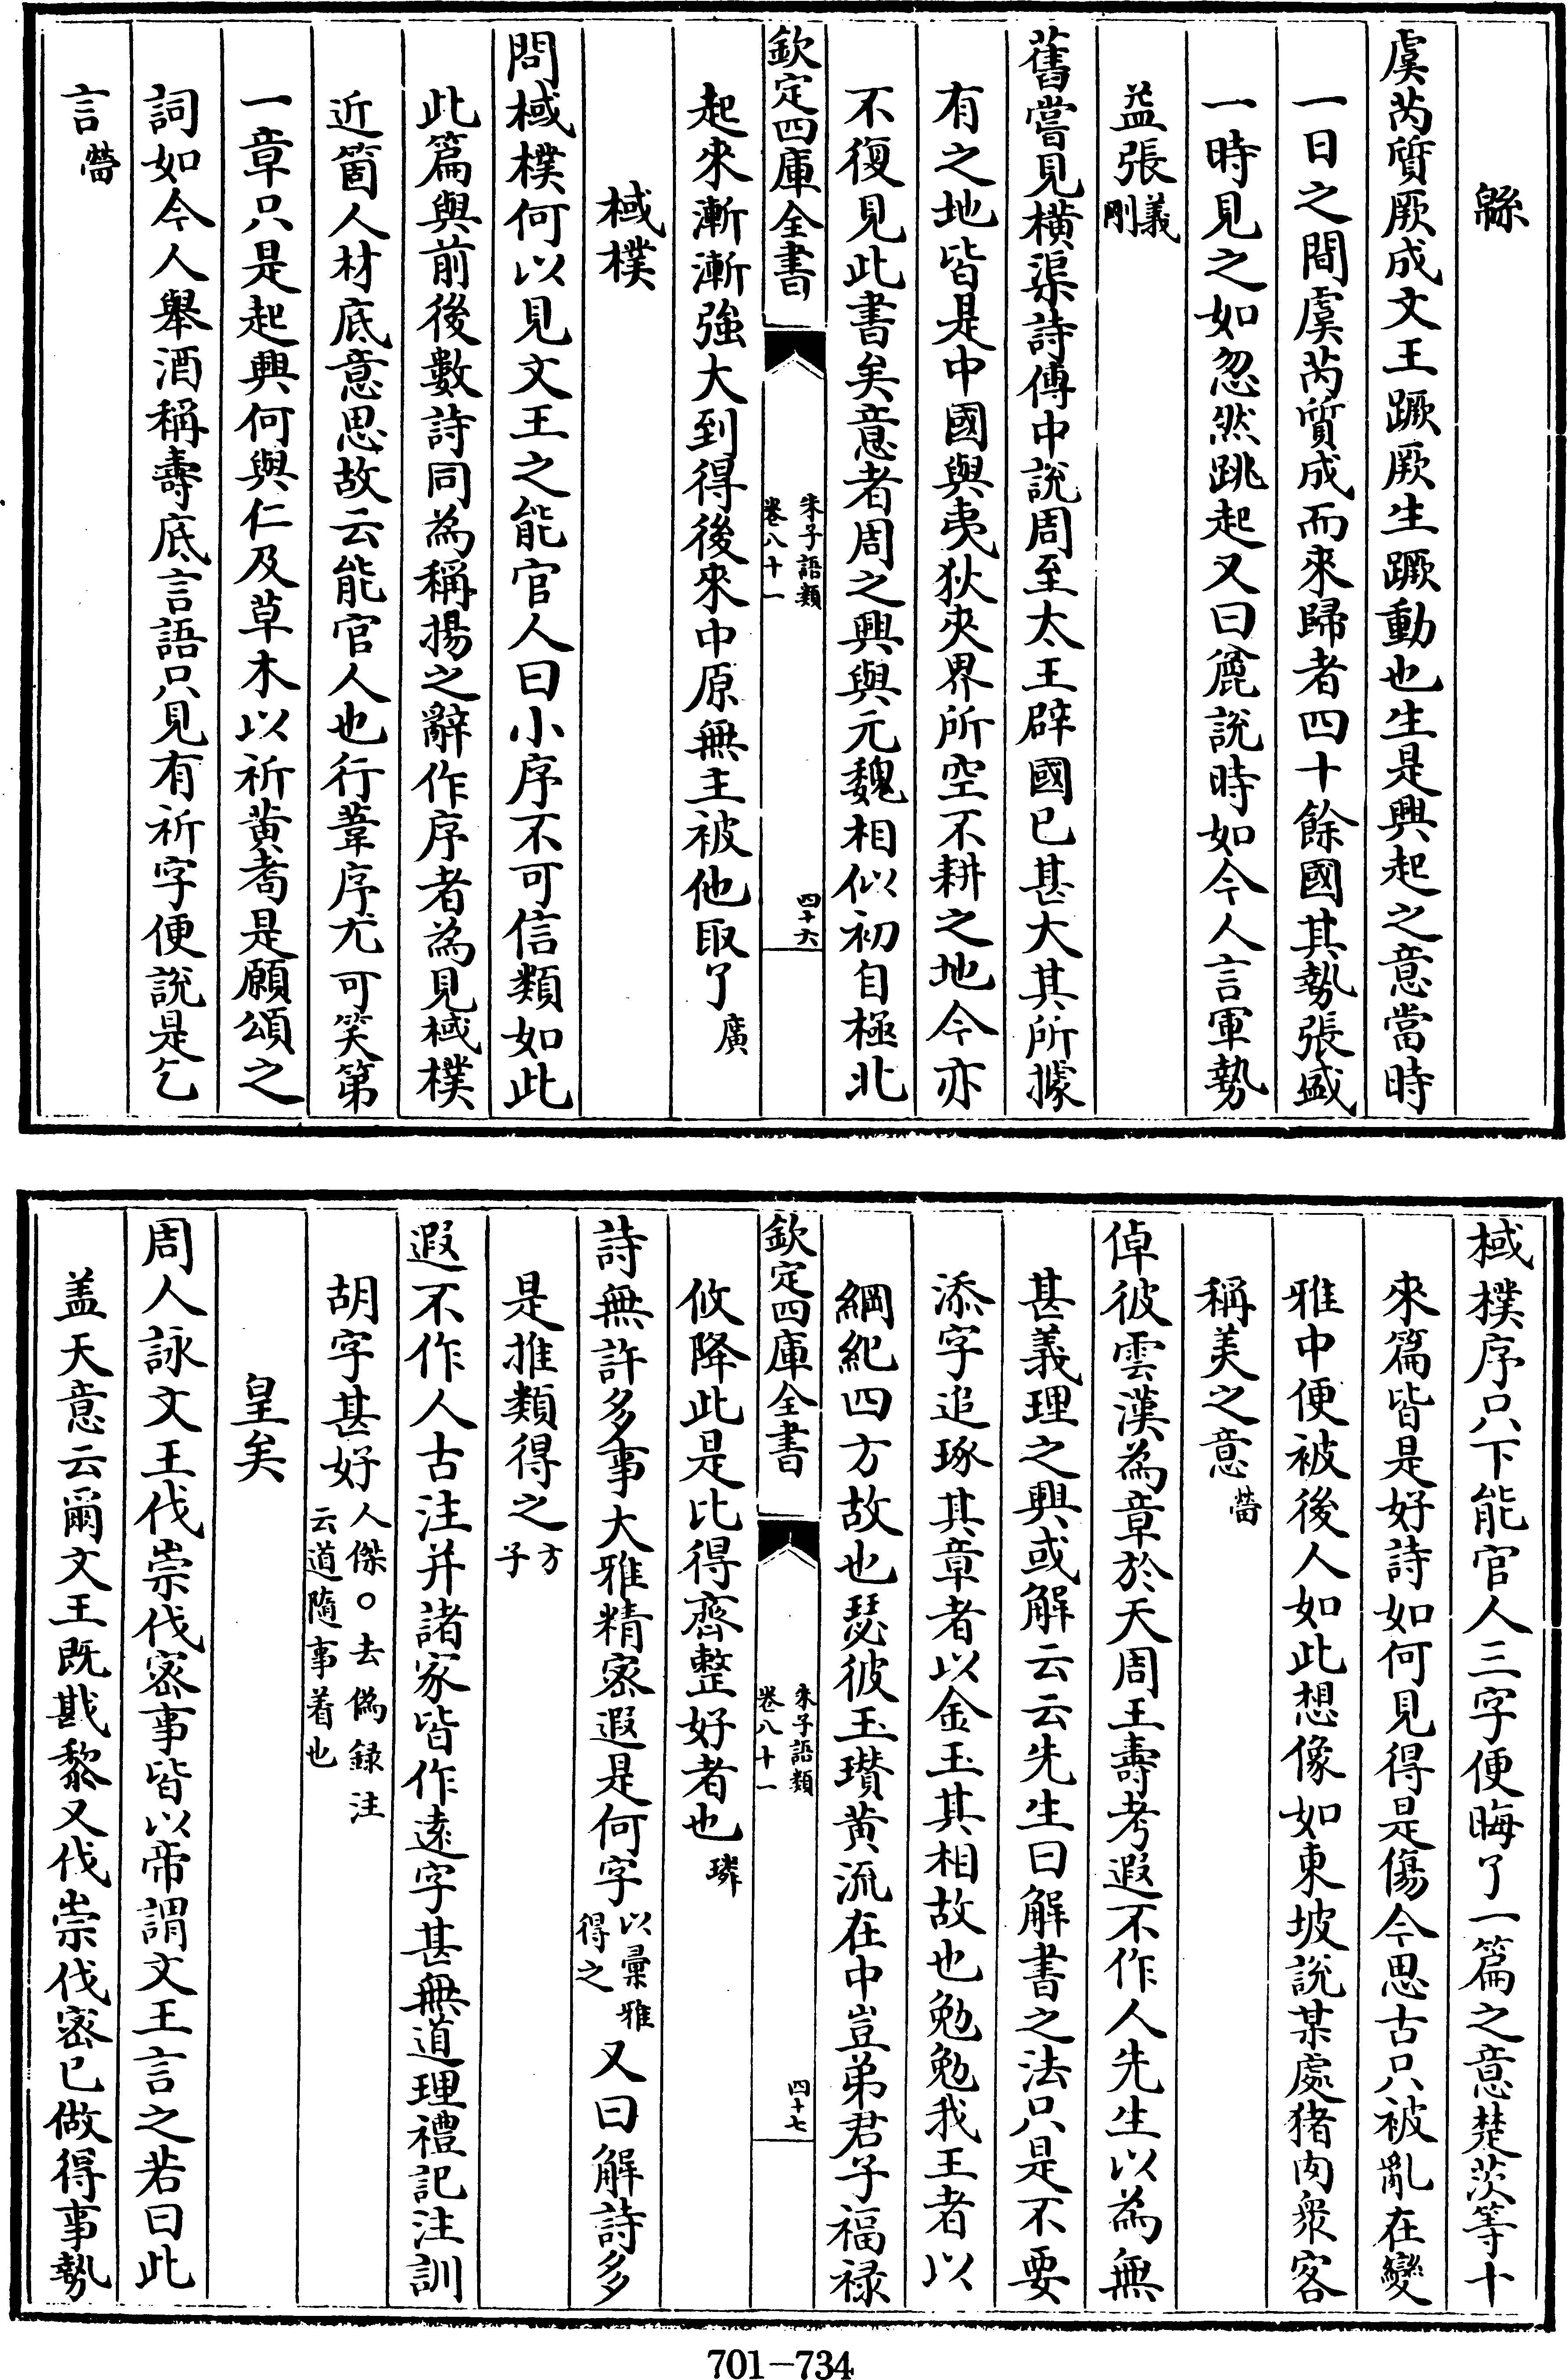 緜
虞芮質厥成文王蹶厥生蹶動也生是興起之意當時
一日之間虞芮質成而來歸者四十餘國其勢張盛
一時見之如忽然跳起又曰麄說時如今人言軍勢
益張義剛
舊嘗見橫渠詩傳中說周至太王辟國已甚大其所據
有之地皆是中國與夷狄夾界所空不耕之地今亦
不復見此書矣意者周之興與元魏相似初自極北
欽定四庫全書
朱子語類
卷八十一
四十六
起來漸漸強大到得後來中原無主被他取了廣
棫樸
問棫樸何以見文王之能官人曰小序不可信類如此
此篇與前後數詩同為稱揚之辭作序者為見棫樸
近箇人材底意思故云能官人也行葦序尤可笑第
一章只是起興何與仁及草木以祈黃耇是願頌之
詞如今人舉酒稱壽底言語只見有祈字便說是乞
言㽦
棫樸序只下能官人三字便晦了一篇之意楚茨等十
來篇皆是好詩如何見得是傷今思古只被亂在變
雅中便被後人如此想像如東坡說某處猪肉衆客
稱美之意㽦
倬彼雲漢為章於天周王壽考遐不作人先生以為無
甚義理之興或解云云先生曰解書之法只是不要
添字追琢其章者以金玉其相故也勉勉我王者以
綱紀四方故也瑟彼玉瓚黃流在中豈弟君子福祿
欽定四庫全書
朱子語類
卷八十一
四十七
攸降此是比得齊整好者也璘
詩無許多事大雅精密遐是何字以彙雅得之又曰解詩多
是推類得之方子
遐不作人古注并諸家皆作遠字甚無道理禮記注訓
胡字甚好人傑○去偽録注云道隨事着也
皇矣
周人詠文王伐崇伐密事皆以帝謂文王言之若曰此
盖天意云爾文王既戡黎又伐崇伐密已做得事勢
701-734